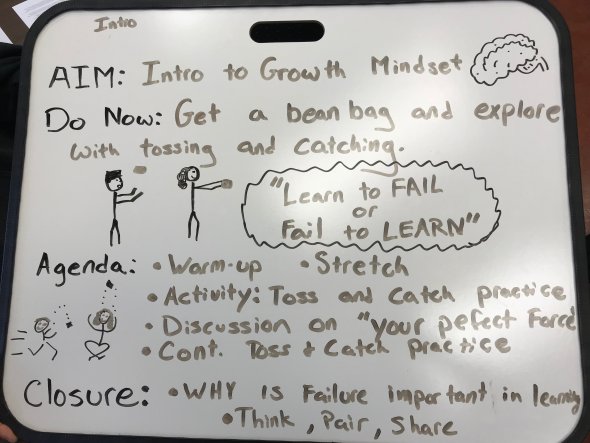 Intro
AIM: Intro to Growth Mindset
Do Now: Get a bean bag and explore
with tossing and catching.
"Learn to FAIL
or
Fail to LEARN"
Agenda: • Warm-up • Stretch
• Activity: Toss and Catch practice
• Discussion on "your pefect Force
• Cont. Toss & Catch practice
Closure: • WHY is Failure important in learning
• Think, Pair, Share